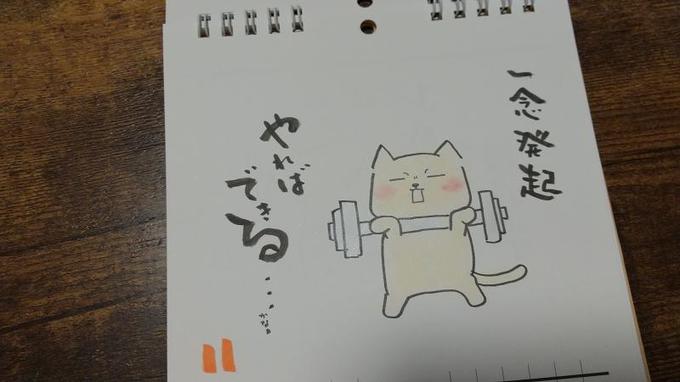 一念発起
やれば
できる・・・
かな。
11